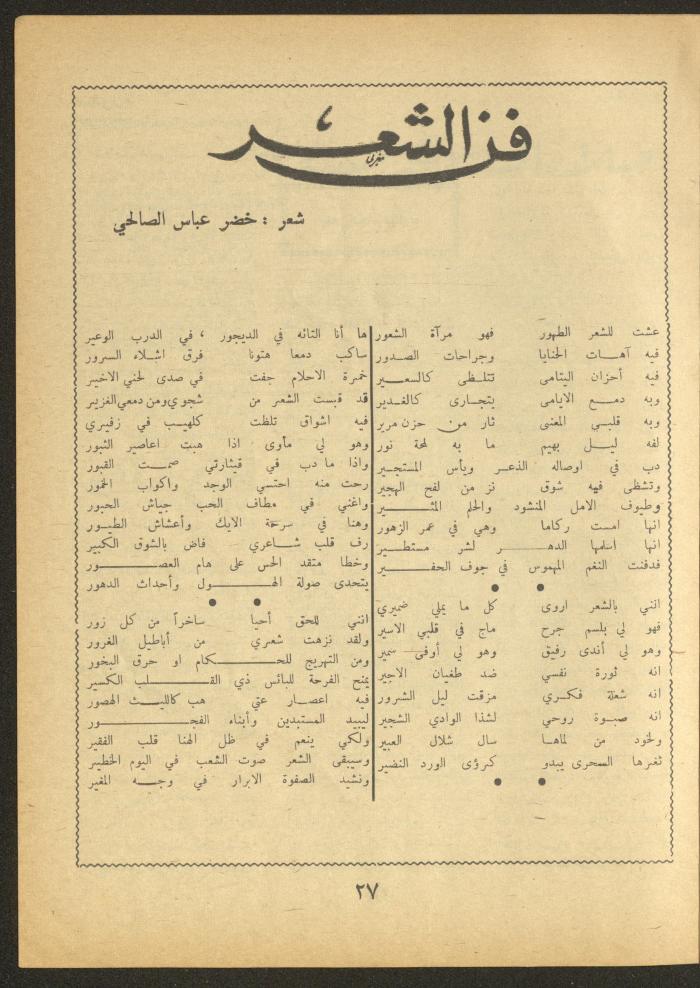 فن الشعر
شعر : خضر عباس الصالحي
عشت للشعر الطهور فهو مرآة الشعور
فيه آهـات الحنايا وجراحات الصدور
فيه أحزان اليتامى تتلـظى كالسعـير
وبه دمـع الايامى يتجـارى كالغـدير
وبه قلبـي المعنى ثار من حزن مرير
لفه ليـل بهيم ما به لمحة نور
دب في اوصاله الذعـر ويأس المستجـير
وتشظى فيه شوق نز من لفح الهجير
وطيوف الامل المنشود والحلم المثـــير
انها امست ركاما وهي في عمر الزهور
انها اسلمها الدهـــر لشر مستطـير
فدفنت النغم المهموس في جوف الحفـــير
● ●
انني بالشعر اروى كل ما يملي ضميري
فهو لي بلسم جرح ماج في قلبي الاسير
وهو لي أندى رفيق وهو لي أوفى سمير
انه ثورة نفسي ضد طغيان الاجير
انه شعلة فكـري مزقت ليل الشرور
انه صبـوة روحي لشذا الوادي الشجير
ولخود من لماهـا سال شلال العبير
ثغرها السحرى يبدو كرؤى الورد النضير
● ●
ها أنا التائه في الديجور ، في الدرب الوعير
ساكب دمعا هتونا فرق اشلاء السرور
خمرة الاحلام جفت في صدى لحني الاخير
قد قبست الشعر من شجوي ومن دمعي الغزير
فيه اشواق تلظت كلهيـب في زفيري
وهو لي مأوى اذا هبت اعاصير الثبور
واذا ما دب في قيثارتي صمـت القبور
رحت منه احتسي الوجد واكواب الخمور
واغني في مطاف الحب جياش الحبور
وهنا في سرحة الايك وأعشاش الطيـور
رف قلب شـاعري فاض بالشوق الكبير
وخطا متقد الحس على هام العصـــور
يتحدى صولة الهـــول وأحداث الدهور
● ●
انني للحق أحيا ساخراً من كل زور
ولقد نزهت شعري من أباطيل الغرور
ومن التهريج للحـــكام او حرق البخور
يمنح الفرحة للبائس ذي القـــلب الكسير
فيه اعصـار عتي هب كالليـث الهصور
ليبيد المستبدين وأبناء الفجـــور
ولكي ينعم في ظل الهنا قلب الفقير
وسيبقى الشعر صوت الشعب في اليوم الخطير
ونشيد الصفوة الابرار في وجـه المغير
٢٧